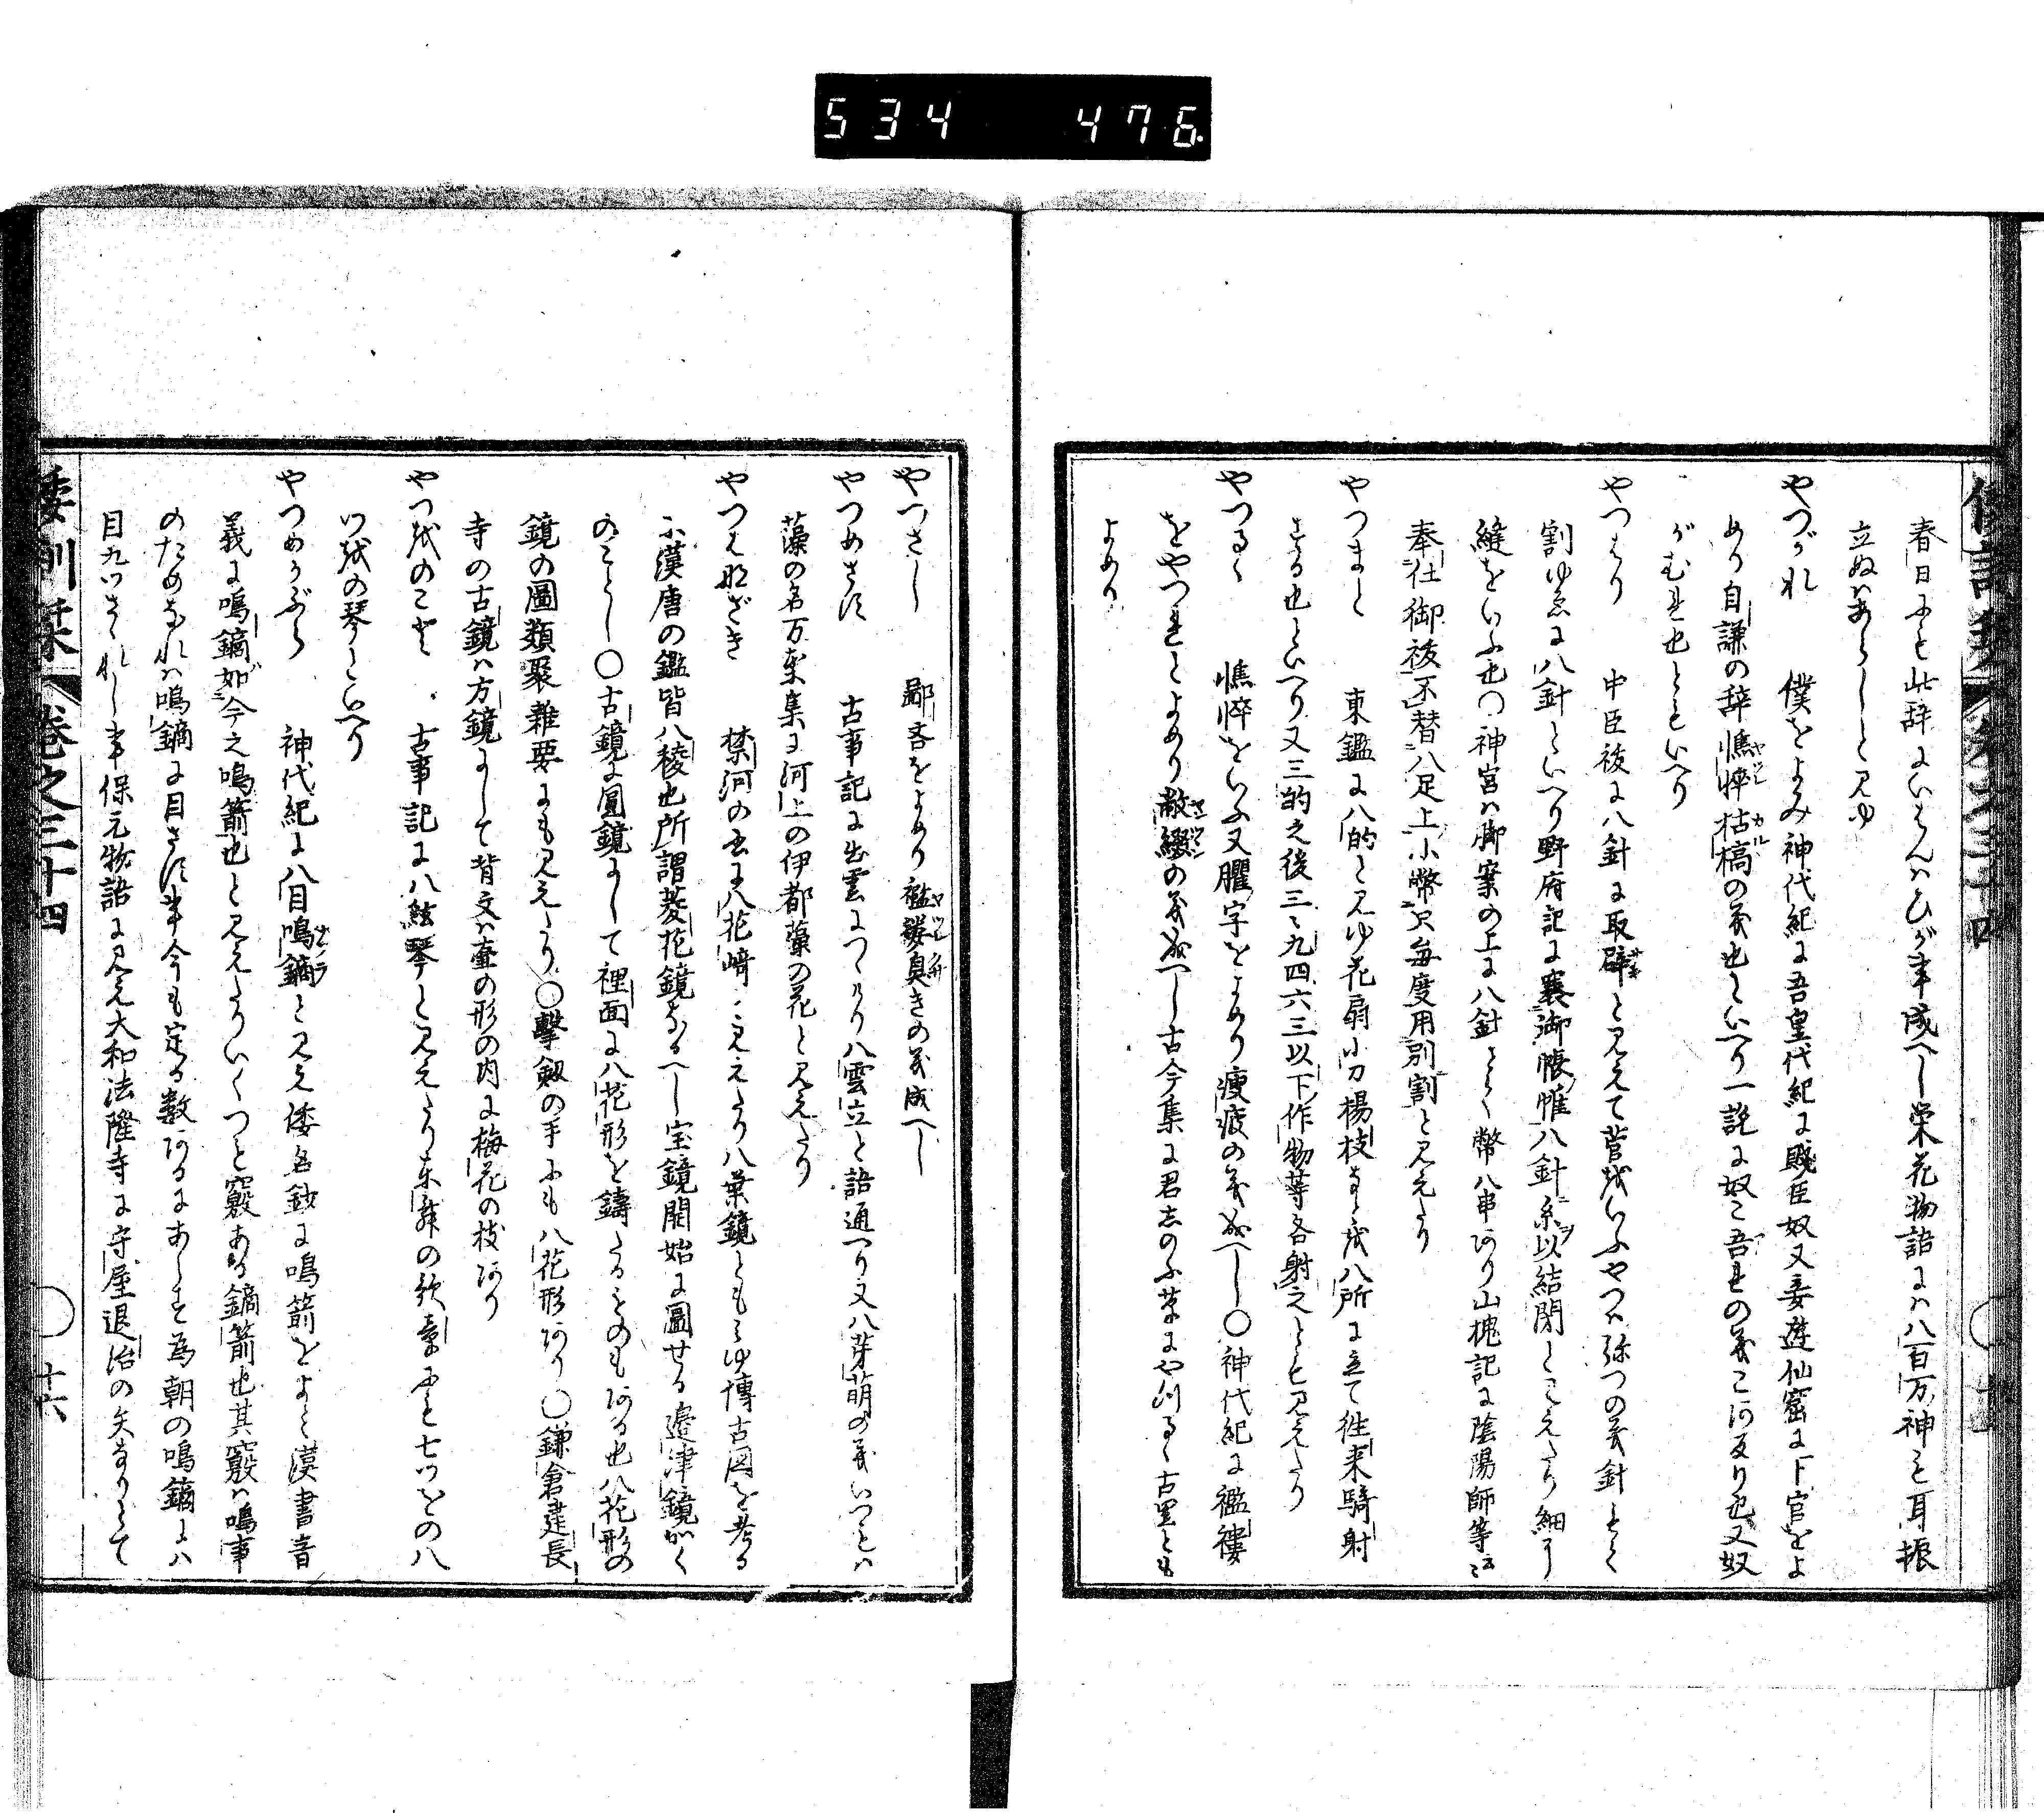 534 476
春日にも此辞にいはんハひが事成へし栄花物語にハ八百万神も耳振
立ぬハあらしと見ゆ
やつがれ 僕をよみ神代紀に吾皇代紀に賤臣奴又妾遊仙窟に下官をよ
めり自謙の辞憔悴枯槁の義也といへり一説に奴こ吾れの義こ阿反り也又奴
がむれ也ともいへり
やつはり 中臣祓に八針に取辟と見えて菅をいふやつハ弥つの義針とハ
割ゆゑに八針といへり野府記に褰御帳帷八針糸以結閇とこえたり細り
縫をいふ也〇神宮ハ脚案の上に八針とて幣八串あり山槐記に陰陽師等
奉仕御祓不替八足上小幣只毎度用別割と見えたり
やつまと 東鑑に八的と見ゆ花扇小刀楊枝なとを八所に立て往来騎射
する也といへり又三的之後三々九四六三以下作物等各射之とも見えたり
やつるゝ 憔悴をいふ又臞字をよめり痩疲の義成へし〇神代紀に襤褸
をやつれとよめり敝綴の義成へし古今集に君しのふ草にやつるゝ古里とも
よめり
やつさし 鄙吝をよめり襤褸臭きの義成へし
やつめさす 古事記に出雲につゝけり八雲立と語通へり又八芽萌の義いつもハ
藻の名万葉集に河上の伊都藻の花と見えたり
やつはなざき 禁河の書に八花﨑と見えたり八葉鏡とも見ゆ博古図を考る
に漢唐の鑑皆八稜也所謂菱花鏡なるへし宝鏡開始に圖せる邊津鏡かく
のことし〇古鏡に圓鏡にして裡面に八花形を鋳たるものもある也八花形の
鏡の圖類聚雜要にも見えたり〇擊劔の手にも八花形あり〇鎌倉建長
寺の古鏡ハ方鏡にして背文ハ壷の形の内に梅花の枝あり
やつをのこと 古事記に八絃琴と見えたり東舞の歌章にも七つをの八
つをの琴といへり
やつめかぶら 神代紀に八目鳴鏑と見え倭名鈔に鳴箭をよむ漢書音
義に鳴鏑如今之鳴箭也と見えたりいくつと竅ある鏑箭也其竅ハ鳴事
のためなれハ鳴鏑に目さす事今も定る数あるにあらす為朝の鳴鏑にハ
目九つさゝれし事保元物語に見え大和法隆寺に守屋退治の矢なりとて
倭訓栞 巻之三十四 〇十六